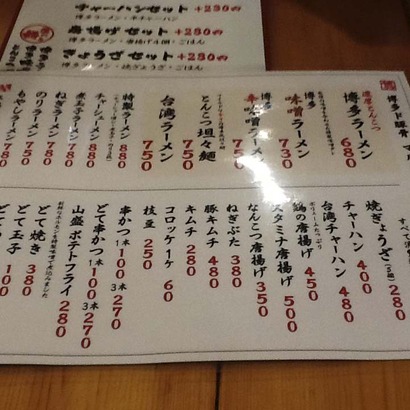 チャーハンセット +250円
博多ラーメン・半チャーハン
唐揚げセット +250円
博多ラーメン・唐揚げ4個・ごはん
ぎょうざセット +230円
博多ラーメン・焼ぎょうざ・ごはん
博多ド豚骨
濃厚とんこつ
博多ラーメン 680
博多
味噌ラーメン 730
博多
辛味噌ラーメン 780
とんこつ坦々麺 750
台湾ラーメン 750
特製ラーメン 880
チャーシューメン 880
煮玉子ラーメン 780
ねぎラーメン 780
のりラーメン 780
もやしラーメン 780
焼ぎょうざ(5個) 280
チャーハン 400
台湾チャーハン 400
ボリュームたっぷり
鶏の唐揚げ 450
スタミナ唐揚げ 500
なんこつ唐揚げ 350
ねぎぶた 380
豚キムチ 480
キムチ 280
コロッケ 1ケ 60
枝豆 250
串かつ 1本 100 3本 270
どて串かつ 1本 100 3本 270
山盛ポテトフライ 280
どて焼き 380
どて玉子 100